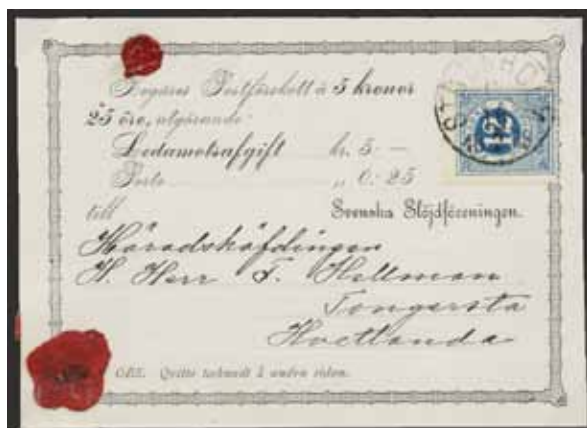 Bogares Postförskott à 5 kronor
25 öre, utgörande:
Ledamotsafgift kr. 5.—
Porto „ 0. 25
till Svenska Slöjdföreningen.
Häradshöfdingen
H. Herr F. Hellman
Tongersta
Hvetlanda
OBS. Qvitto tecknadt å andra sidan.
12